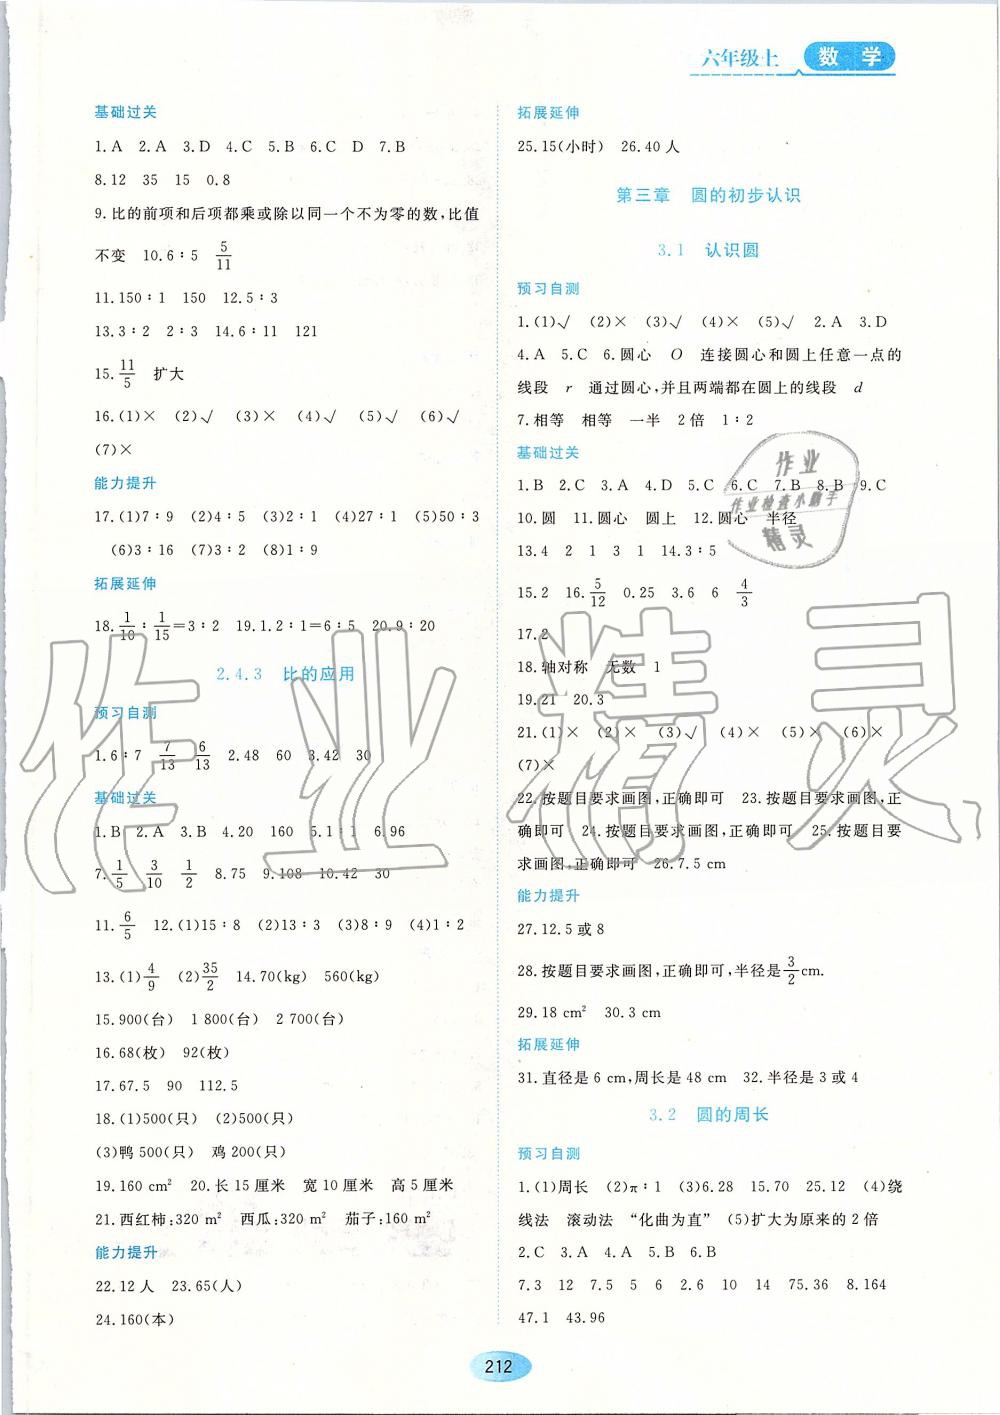 六年级上 数学
基础过关
1.A 2.A 3.D 4.C 5.B 6.C D 7.B
8.12 35 15 0.8
9.比的前项和后项都乘或除以同一个不为零的数,比值
不变 10.6∶5 5/11
11.150∶1 150 12.5∶3
13.3∶2 2∶3 14.6∶11 121
15.11/5 扩大
16.(1)× (2)√ (3)× (4)√ (5)√ (6)√
(7)×
能力提升
17.(1)7∶9 (2)4∶5 (3)2∶1 (4)27∶1 (5)50∶3
(6)3∶16 (7)3∶2 (8)1∶9
拓展延伸
18.1/10∶1/15=3∶2 19.1.2∶1=6∶5 20.9∶20
2.4.3 比的应用
预习自测
1.6∶7 7/13 6/13 2.48 60 3.42 30
基础过关
1.B 2.A 3.B 4.20 160 5.1∶1 6.96
7.1/5 3/10 1/2 8.75 9.108 10.42 30
11.6/5 12.(1)15∶8 (2)13∶3 (3)8∶9 (4)1∶2
13.(1)4/9 (2)35/2 14.70(kg) 560(kg)
15.900(台) 1 800(台) 2 700(台)
16.68(枚) 92(枚)
17.67.5 90 112.5
18.(1)500(只) (2)500(只)
(3)鸭 500(只) 鸡 200(只)
19.160 cm² 20.长 15 厘米 宽 10 厘米 高 5 厘米
21.西红柿:320 m² 西瓜:320 m² 茄子:160 m²
能力提升
22.12 人 23.65(人)
24.160(本)
拓展延伸
25.15(小时) 26.40 人
第三章 圆的初步认识
3.1 认识圆
预习自测
1.(1)√ (2)× (3)√ (4)× (5)√ 2.A 3.D
4.A 5.C 6.圆心 O 连接圆心和圆上任意一点的
线段 r 通过圆心,并且两端都在圆上的线段 d
7.相等 相等 一半 2 倍 1∶2
基础过关
1.B 2.C 3.A 4.D 5.C 6.C 7.B 8.B 9.C
10.圆 11.圆心 圆上 12.圆心 半径
13.4 2 1 3 1 14.3∶5
15.2 16.5/12 0.25 3.6 6 4/3
17.2
18.轴对称 无数 1
19.21 20.3
21.(1)× (2)× (3)√ (4)× (5)× (6)×
(7)×
22.按题目要求画图,正确即可 23.按题目要求画图,正
确即可 24.按题目要求画图,正确即可 25.按题目要
求画图,正确即可 26.7.5 cm
能力提升
27.12.5 或 8
28.按题目要求画图,正确即可,半径是3/2cm.
29.18 cm² 30.3 cm
拓展延伸
31.直径是 6 cm,周长是 48 cm 32.半径是 3 或 4
3.2 圆的周长
预习自测
1.(1)周长 (2)π∶1 (3)6.28 15.70 25.12 (4)绕
线法 滚动法 “化曲为直” (5)扩大为原来的 2 倍
2.C 3.A 4.A 5.B 6.B
7.3 12 7.5 5 6 2.6 10 14 75.36 8.164
47.1 43.96
212
作业
作业检查小助手
精灵
作业精灵